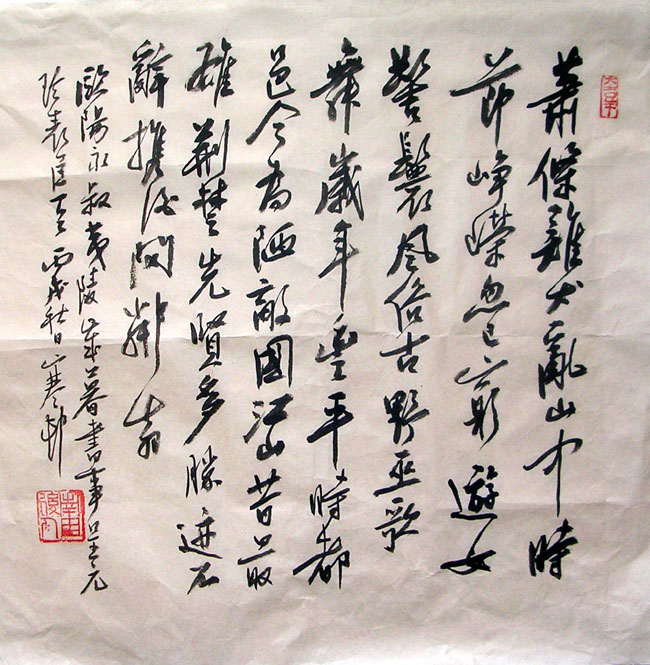 蕭條雞犬亂山中時
節崢嶸忽已窮遊女
髻鬟風俗古野巫歌
舞歲年豐平時都
邑今為陋敵國江山昔最
雄荊楚先賢多勝迹不
辭攜酒問鄰翁
歐陽永叔夷陵歲暮書事呈元
珍表臣 丙戌秋日寒邨